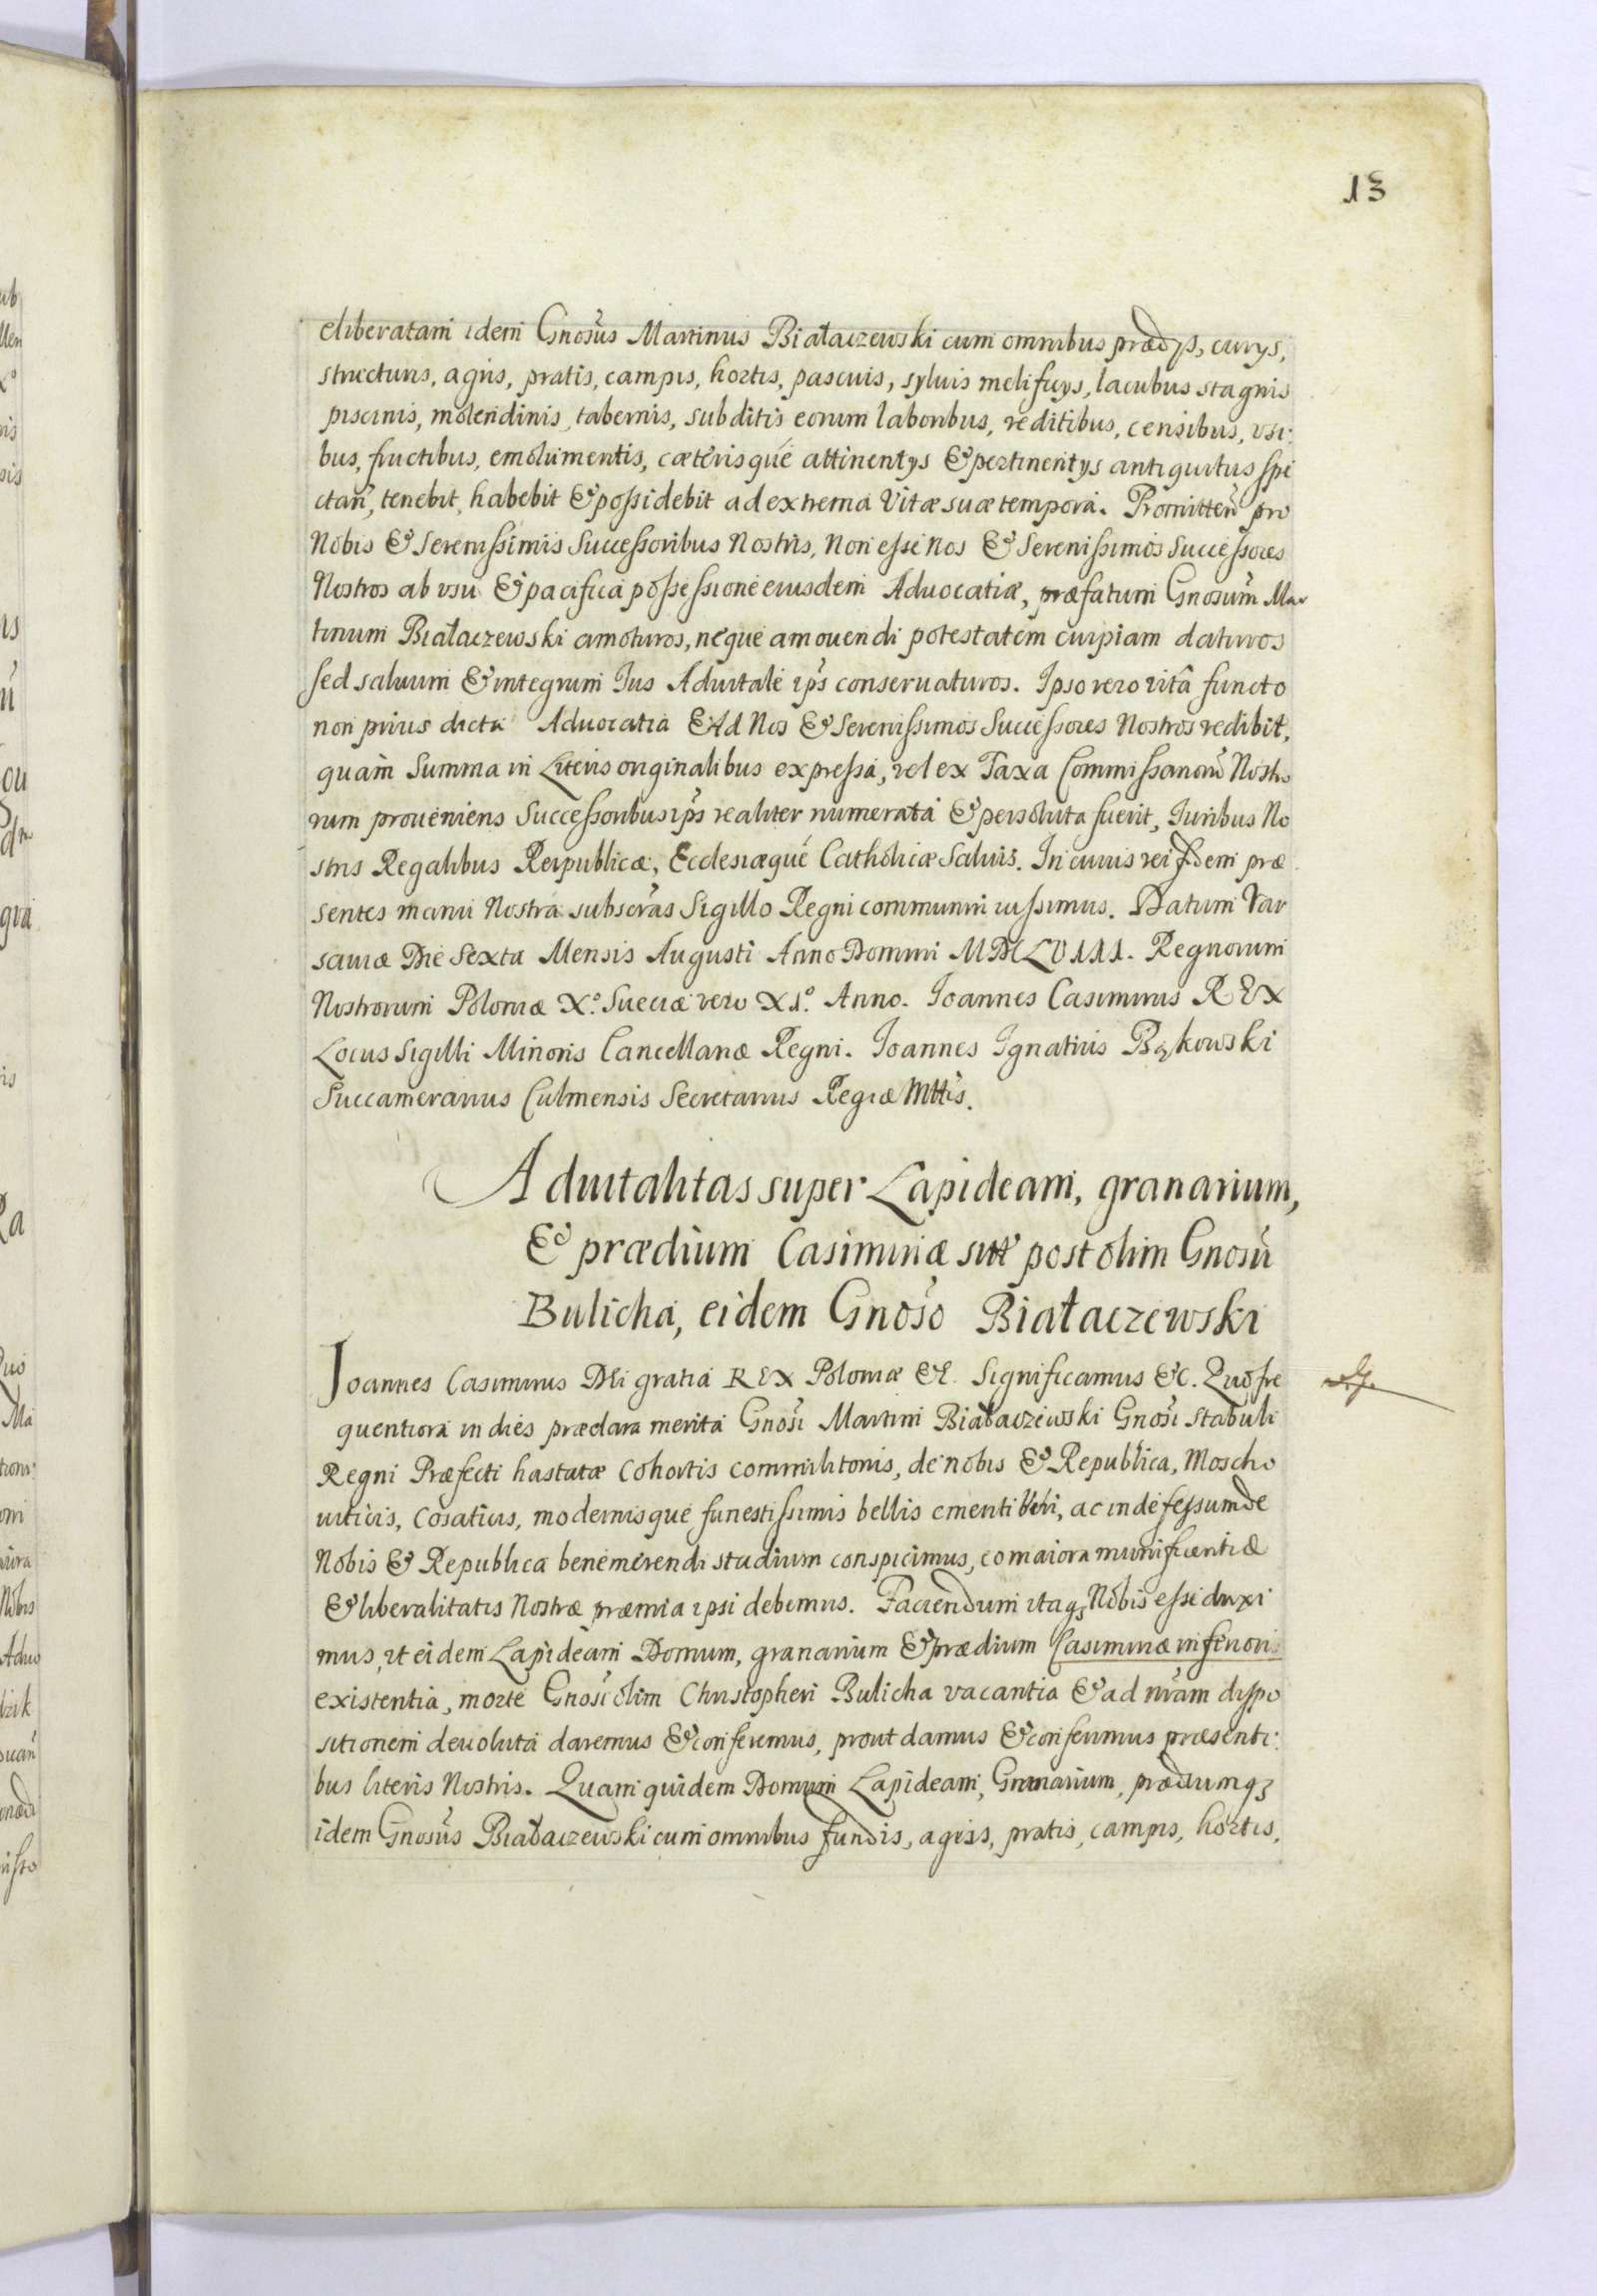 13
eliberatam idem Gnosus Martinus Białaczewski cum omnibus prædijs, curijs,
structuris, agris, pratis, campis, hortis, pascuis, syluis melifuijs, lacubus stagnis
piscinis, molendinis, tabernis, subditis eorum laboribus, reditibus, censibus, vsi:
bus, fructibus, emolumentis, cæterisque attinentijs & pertinentijs antiquitus spe
ctan̄, tenebit, habebit & possidebit ad extrema Vitæ suæ tempora. Promitten̄ pro
Nobis & Serenissimis Successoribus Nostris, Non esse Nos & Serenissimos Successores
Nostros ab vsu & pacifica possessione eiusdem Aduocatiæ, præfatum Gnosum Mar
tinum Białaczewski amoturos, neque amouendi potestatem cuipiam daturos
sed saluum & integrum Ius Aduitale ips conseruaturos. Ipso vero vitâ functo
non prius dicta Aduocatia Ad Nos & Serenissimos Successores Nostros redibit,
quàm Summa in Literis originalibus expressa, vel ex Taxa Commissariorū Nostro
rum proueniens Successoribus ips realiter numerata & persoluta fuerit, Iuribus No
stris Regalibus Reipublicæ, Ecclesiæque Catholicæ Saluis. In cuius rei fidem præ
sentes manu Nostra subscras Sigillo Regni communiri iussimus. Datum Var
sauiæ Die Sexta Mensis Augusti Anno Domini MDCLVIII. Regnorum
Nostrorum Poloniæ X.º Sueciæ vero XIº. Anno. Ioannes Casimirus REX
Locus Sigilli Minoris Cancellariæ Regni. Ioannes Ignatius Bąkowski
Succamerarius Culmensis Secretarius Regiæ Mttis.
Aduitalitas super Lapideam, granarium,
& prædium Casimiriæ sit post olim Gnosū
Bulicha, eidem Gnoso Białaczewski
Ioannes Casimirus DEi gratia REX Poloniæ &c. Significamus &c. Quo fre
quentiora in dies præclara merita Gnosi Martini Białaczewski Gnosi Stabuli
Regni Præfecti hastatæ Cohortis commilitonis, de nobis & Republica, Moscho
uiticis, Cosaticis, modernisque funestissimis bellis emeriti, ac indefessum de
Nobis & Republica benemerendi studium conspicimus, eo maiora munificentiæ
& liberalitatis Nostræ præmia ipsi debemus. Faciendum itaq₃ Nobis esse duxi
mus, vt eidem Lapideam Domum, granarium & prædium Casimiriæ inferioris
existentia, morte Gnosi olim Christopheri Bulicha vacantia & ad nr̄am dispo
sitionem deuoluta daremus & conferemus, prout damus & conferimus præsenti:
bus literis Nostris. Quam quidem Domum Lapideam, Granarium, prædiumq₃
idem Gnosus Białaczewski cum omnibus fundis, agris, pratis, campis, hortis,